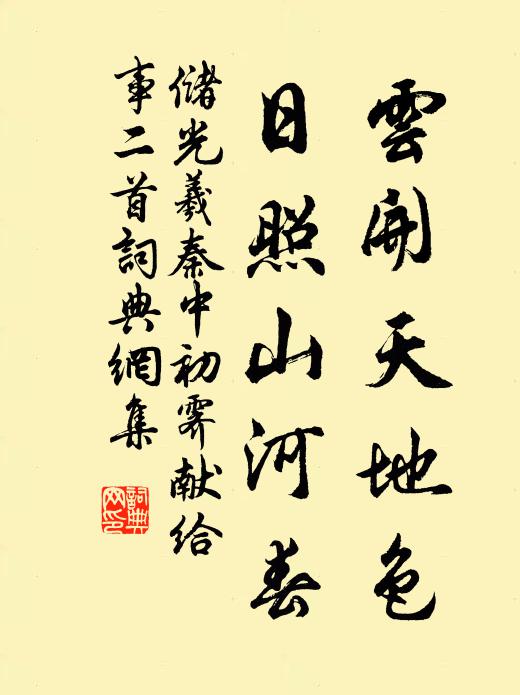 雲開天地色
日照山河春
儲光羲秦中初霽献給
事二首詞典網集
詞典
网印